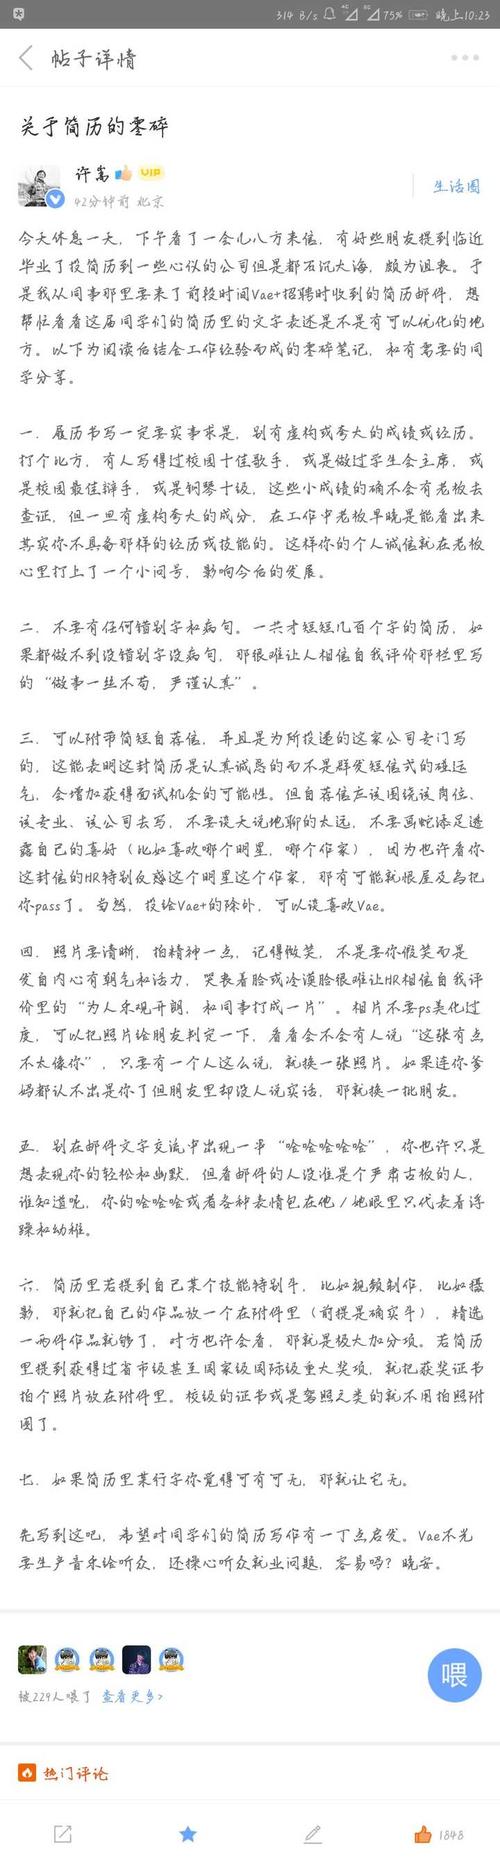 314 B/s 4G 5G 75% 晚上10:23
帖子详情
关于简历的零碎
许嵩 VIP
42分钟前 北京
生活圈
今天休息一天，下午看了一会儿八方来信，有好些朋友提到临近
毕业了投简历到一些心仪的公司但是都石沉大海，颇为沮丧。于
是我从同事那里要来了前段时间Vae+招聘时收到的简历邮件，想
帮忙看看这届同学们的简历里的文字表述是不是有可以优化的地
方。以下为阅读后结合工作经验而成的零碎笔记，和有需要的同
学分享。
一．履历书写一定要实事求是，别有虚构或夸大的成绩或经历。
打个比方，有人写得过校园十佳歌手，或是做过学生会主席，或
是校园最佳辩手，或是钢琴十级，这些小成绩的确不会有老板去
查证，但一旦有虚构夸大的成分，在工作中老板早晚是能看出来
其实你不具备那样的经历或技能的。这样你的个人诚信就在老板
心里打上了一个小问号，影响今后的发展。
二．不要有任何错别字和病句。一共才短短几百个字的简历，如
果都做不到没错别字没病句，那很难让人相信自我评价那栏里写
的“做事一丝不苟，严谨认真”。
三．可以附带简短自荐信，并且是为所投递的这家公司专门写
的，这能表明这封简历是认真诚恳的而不是群发短信式的碰运
气，会增加获得面试机会的可能性。但自荐信应该围绕该岗位、
该专业、该公司去写，不要谈天说地聊的太远，不要画蛇添足透
露自己的喜好（比如喜欢哪个明星，哪个作家），因为也许看你
这封信的HR特别反感这个明星这个作家，那有可能就恨屋及乌把
你pass了。当然，投给Vae+的除外，可以谈喜欢Vae。
四．照片要清晰，拍精神一点，记得微笑，不是要你假笑而是
发自内心有朝气和活力，哭丧着脸或冷漠脸很难让HR相信自我评
价里的“为人乐观开朗，和同事打成一片”。相片不要ps美化过
度，可以把照片给朋友判定一下，看看会不会有人说“这张有点
不太像你”，只要有一个人这么说，就换一张照片。如果连你爹
妈都认不出是你了但朋友里却没人说实话，那就换一批朋友。
五．别在邮件文字交流中出现一串“哈哈哈哈哈”，你也许只是
想表现你的轻松和幽默，但看邮件的人没准是个严肃古板的人，
谁知道呢，你的哈哈哈或者各种表情包在他/她眼里只代表着浮
躁和幼稚。
六．简历里若提到自己某个技能特别牛，比如视频制作，比如摄
影，那就把自己的作品放一个在附件里（前提是确实牛），精选
一两件作品就够了，对方也许会看，那就是极大加分项。若简历
里提到获得过省市级甚至国家级国际级重大奖项，就把获奖证书
拍个照片放在附件里。校级的证书或是驾照之类的就不用拍照附
图了。
七．如果简历里某行字你觉得可有可无，那就让它无。
先写到这吧，希望对同学们的简历写作有一丁点启发。Vae不光
要生产音乐给听众，还操心听众就业问题，容易吗？晚安。
喂
被229人喂了 查看更多>
热门评论
1848